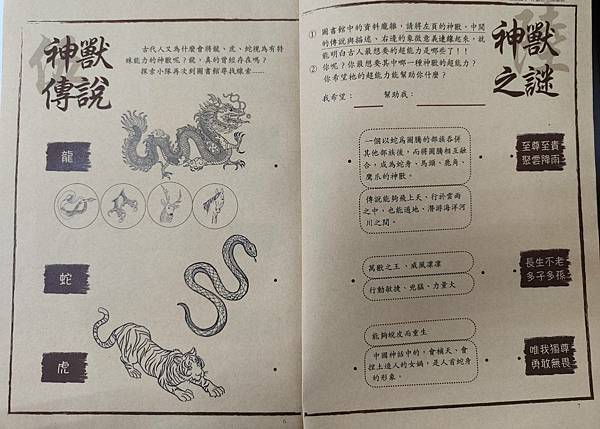 神獸
傳說
古代人又為什麼會將龍、虎、蛇視為有特
殊能力的神獸呢？龍，真的曾經存在嗎？
探索小隊再次到圖書館尋找線索……
龍
蛇
虎
6
陸
神獸
之謎
① 圖書館中的資料龐雜，請將左頁的神獸、中間
的傳說與描述、右邊的象徵意義連線起來，就
能明白古人最想要的超能力是哪些了！！
② 你呢？你最想要其中哪一種神獸的超能力？
你希望他的超能力能幫助你什麼？
我希望： 幫助我：
一個以蛇為圖騰的部族吞併
其他部族後，而將圖騰相互融
合，成為蛇身、馬頭、鹿角、
鷹爪的神獸。
傳說能夠飛上天、行於雲雨
之中，也能遁地、潛游海洋河
川之間。
至尊至貴
聚雲降雨
萬獸之王、威風凜凜
行動敏捷、兇猛、力量大
長生不老
多子多孫
能夠蛻皮而重生
中國神話中的，會補天、會
捏土造人的女媧，是人首蛇身
的形象。
唯我獨尊
勇敢無畏
7